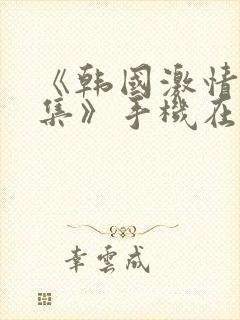 《韩國激情
集》手機在
幸雲成